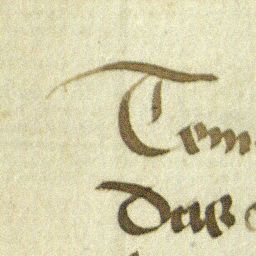 Tem
Das